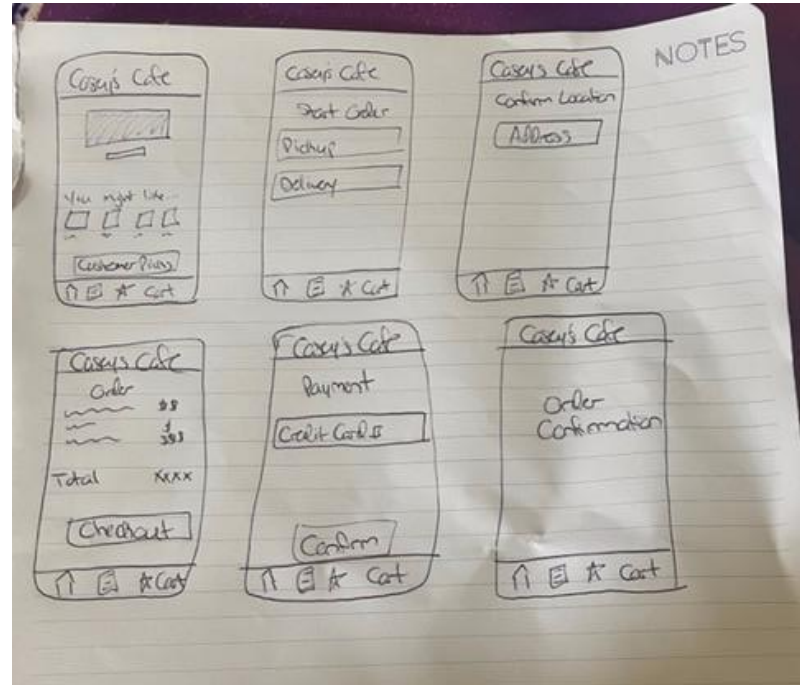 NOTES
Casey's Cafe
You might like...
Customer Picks
Cart
Casey's Cafe
Start Order
Pickup
Delivery
Cart
Casey's Cafe
Confirm Location
Address
Cart
Casey's Cafe
Order
Total XXXX
Checkout
Cart
Casey's Cafe
Payment
Credit Card
Confirm
Cart
Casey's Cafe
Order
Confirmation
Cart